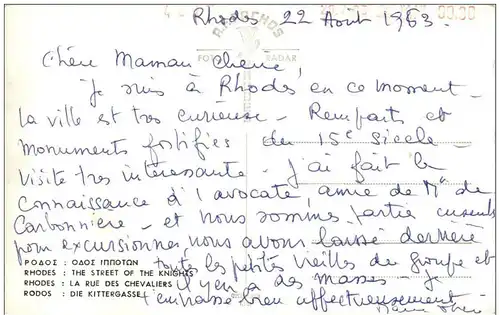 Rhodes 22 Aout 1963.
FOTO RADAR
Chère Maman Cherie,
Je suis à Rhodes en ce moment -
la ville est tres curieuse - Remparts et
monuments fortifiés du 15e siecle -
Visite tres interessante - j'ai fait la
connaissance d l'avocate, amie de Me de
Carbonnière - et nous sommes partie ensemble
pour excursionner, nous avons laissé derrière
toutes les petites vieilles du groupe et
il y en a des masses - Je
t'embrasse bien affectueusement -
ΡΟΔΟΣ : ΟΔΟΣ ΙΠΠΟΤΩΝ
RHODES : THE STREET OF THE KNIGHTS
RHODES : LA RUE DES CHEVALIERS
RODOS : DIE KITTERGASSE